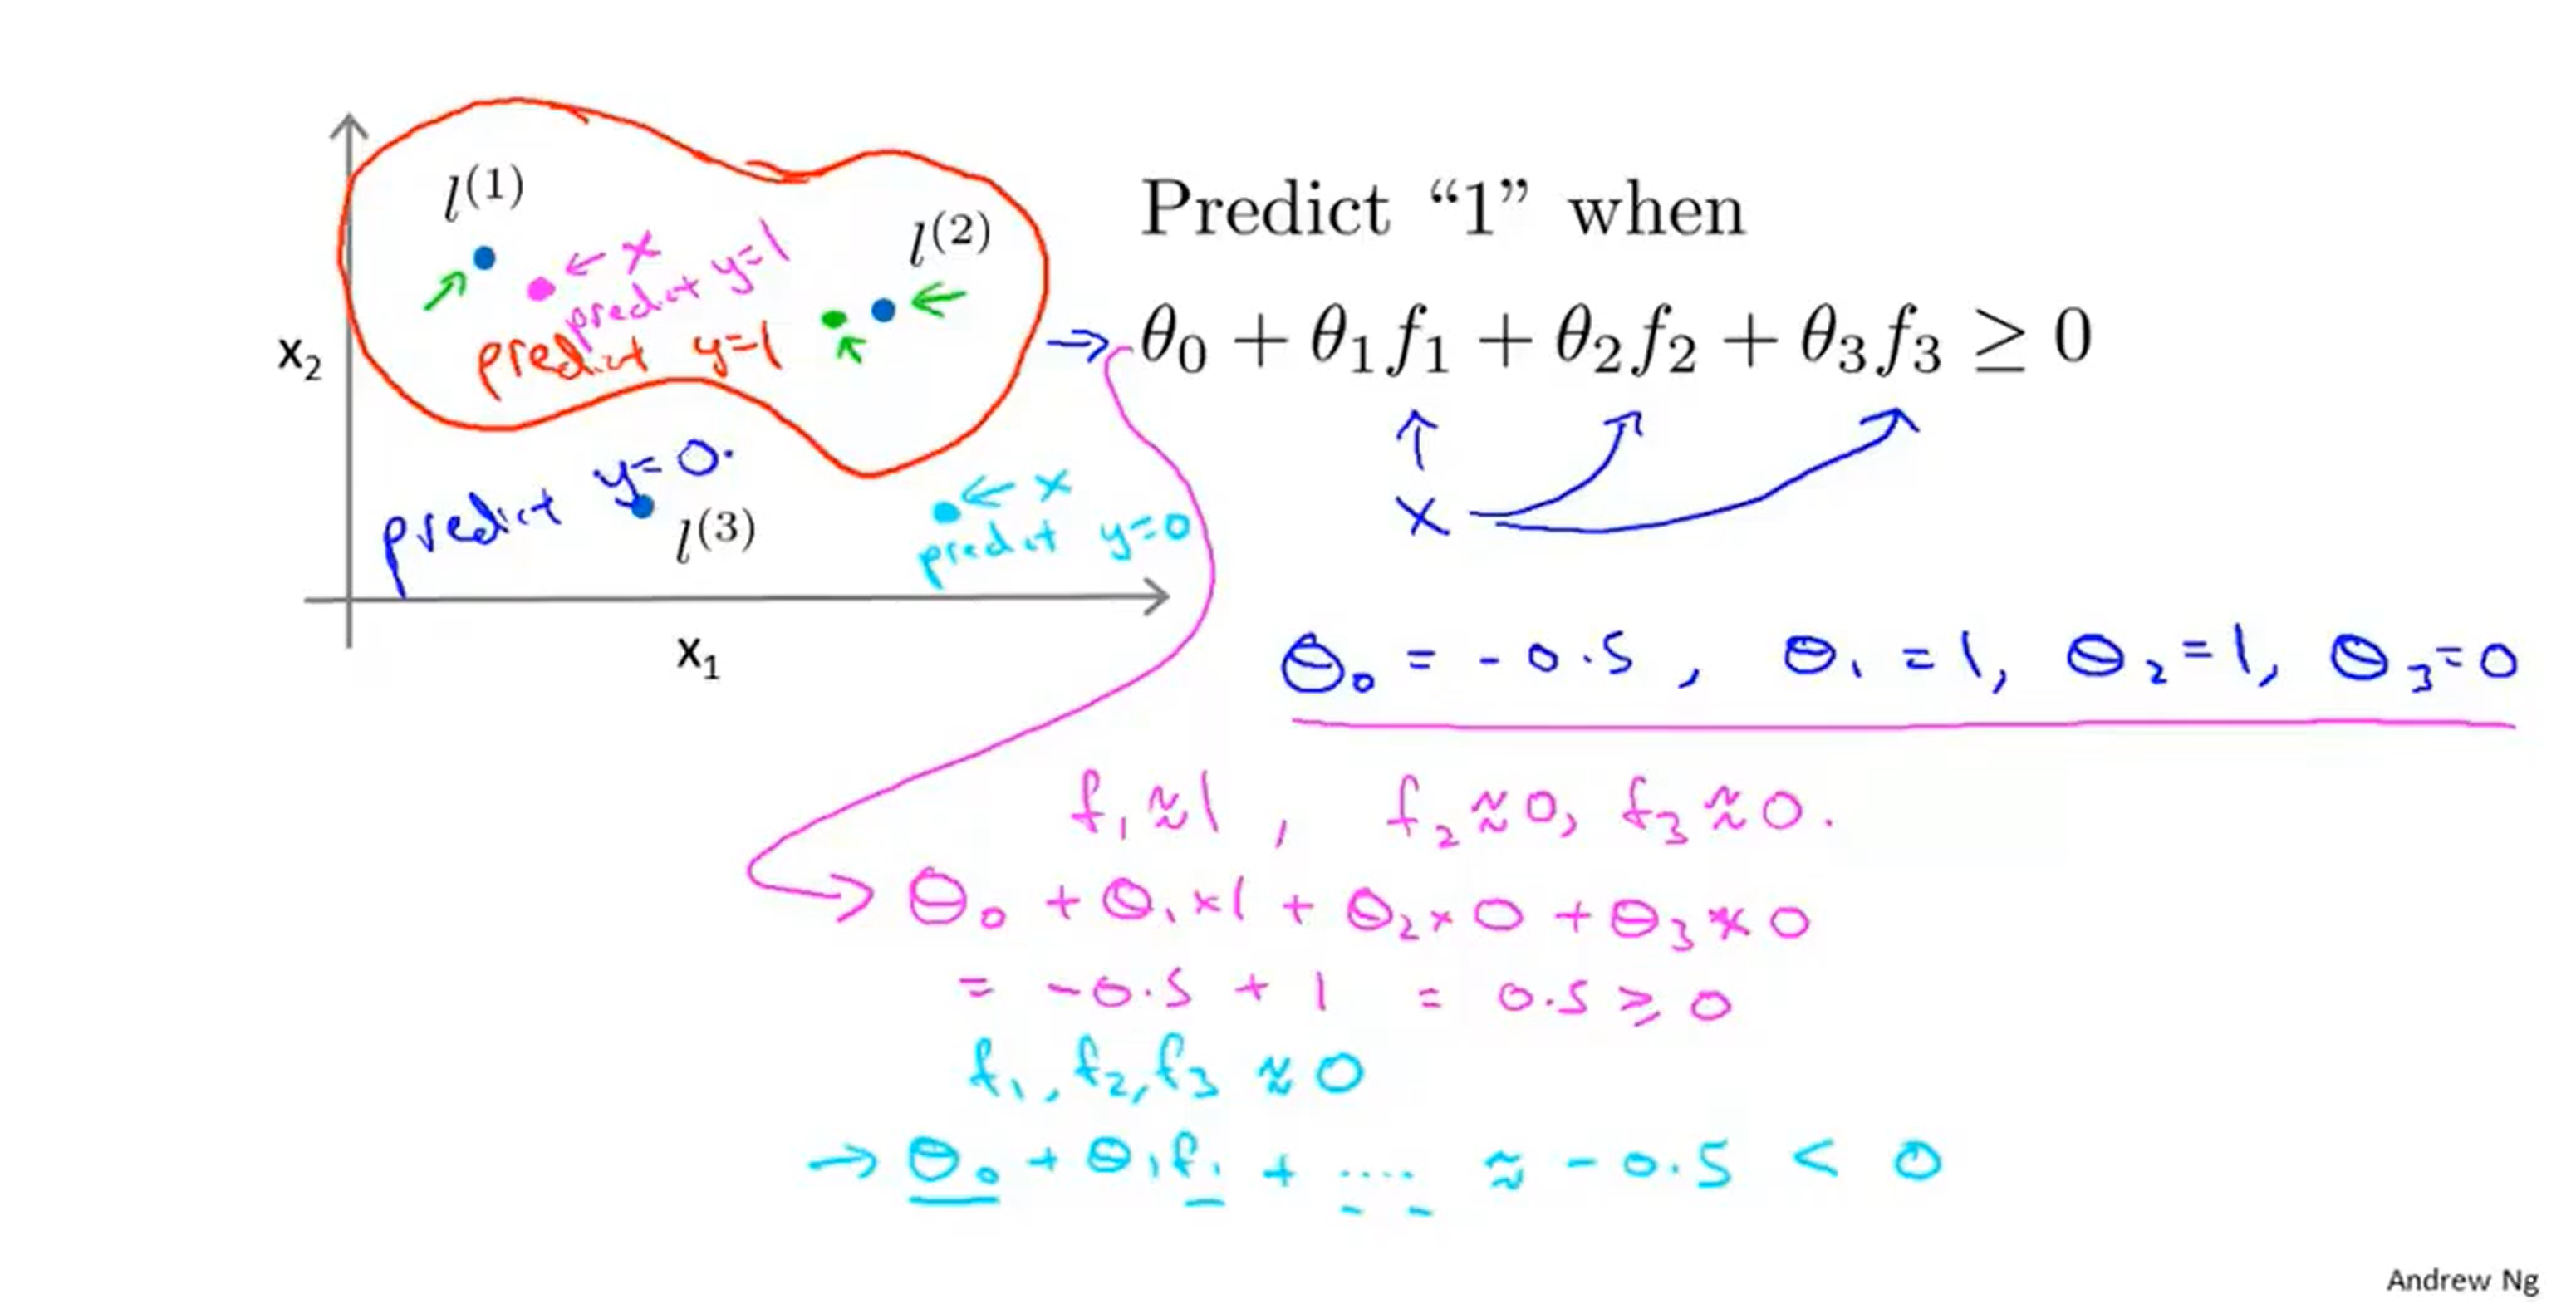 l^(1)
l^(2)
← x
predict y=1
predict y=1
x₂
predict y=0.
l^(3)
← x
predict y=0
x₁
Predict “1” when
→ θ₀ + θ₁f₁ + θ₂f₂ + θ₃f₃ ≥ 0
x
θ₀ = -0.5, θ₁ = 1, θ₂ = 1, θ₃ = 0
f₁ ≈ 1, f₂ ≈ 0, f₃ ≈ 0.
→ θ₀ + θ₁×1 + θ₂×0 + θ₃×0
= -0.5 + 1 = 0.5 ≥ 0
f₁, f₂, f₃ ≈ 0
→ θ₀ + θ₁f₁ + .... ≈ -0.5 < 0
Andrew Ng